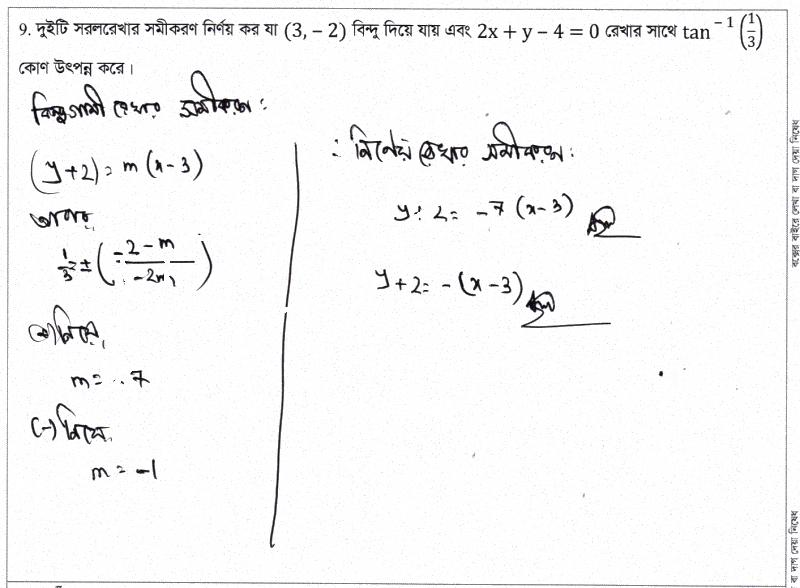 9. দুইটি সরলরেখার সমীকরণ নির্ণয় কর যা (3, – 2) বিন্দু দিয়ে যায় এবং 2x + y – 4 = 0 রেখার সাথে tan⁻¹(1/3)
কোণ উৎপন্ন করে।
বিন্দুগামী রেখার সমীকরণ :
(y+2) = m (x-3)
আবার,
1/3 = ± ( (-2-m) / (1-2m) )
(+) নিয়ে,
m = -7
(-) নিয়ে,
m = -1
∴ নির্ণেয় রেখার সমীকরণ :
y+2 = -7 (x-3)
y+2 = -(x-3)
বক্সের বাইরে লেখা বা দাগ দেয়া নিষেধ
বা দাগ দেয়া নিষেধ